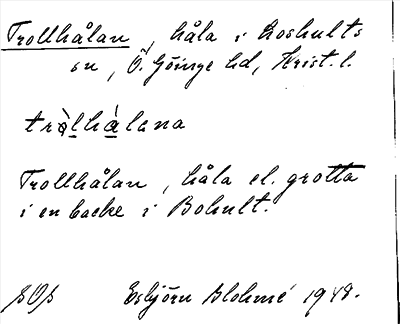 Trollhålan, håla i Loshults
sn, Ö. Göinge hd, Krist. l.
tròlhàlana
Trollhålan, håla el. grotta
i en backe i Bohult.
Esbjörn Blohmé 1948.